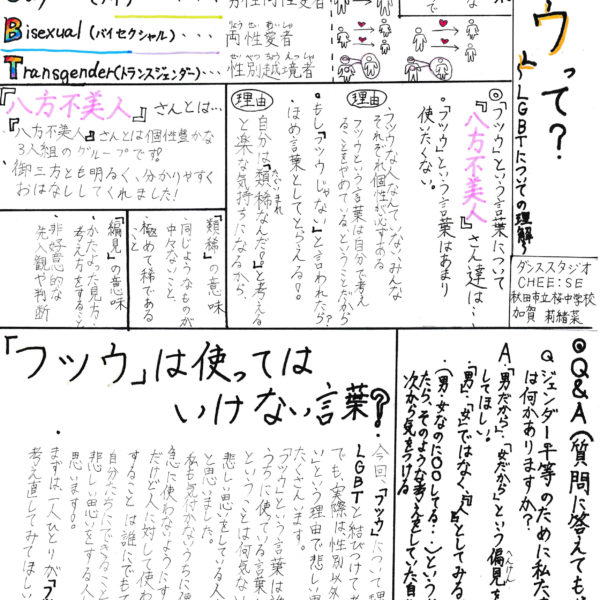 ウって?
LGBTについての理解
ダンススタジオ
CHEE:SE
秋田市立桜中学校
加賀 莉緒菜
Bisexual(バイセクシャル)・・・
りょうせいあいしゃ
両性愛者
Transgender(トランスジェンダー)・・・
せいべつえっきょうしゃ
性別越境者
◎「フツウ」という言葉について
『八方不美人』さん達は…
・「フツウ」という言葉はあまり
使いたくない。
理由
フツウな人なんていない、みんな
それぞれ個性が必ずある
フツウという言葉は自分で考え
ることをやめているということだから
・もし「フツウじゃない」と言われたら?
ほめ言葉としてとらえる!。
理由
自分は「類稀なんだ!」と考える
たぐいまれ
と楽な気持ちになるから。
『八方不美人』さんとは…
『八方不美人』さんとは個性豊かな
3人組のグループです。
御三方とも明るく、分かりやすく
おはなししてくれました!
「類稀」の意味
同じようなものが
中々ないこと、
極めて稀である
こと
「偏見」の意味
・かたよった見方・
考え方をすること
・非好意的な
先入観や判断
◎Q&A(質問に答えても
Q ジェンダー平等のために私たち
は何かありますか?
A・「男だから」、「女だから」という偏見を
へんけん
してほしい。
・「男」、「女」ではなく、「自分」としてみる。
・(男・女なのに○○してる…)という
たら、そのような考えをしていた自
次から気をつける
「フツウ」は使っては
いけない言葉?
・今回、「フツウ」について理
LGBTと結びつけて
でも、実際は、性別以外
い」という理由で悲しい思
たくさんいます。
「フツウ」という言葉は
うちに使ている言葉
ということは何気ない
悲しい思いをしている人
と思いました。
私も気付かないうちに使
急に使わないようにす
だけど、人に対して使わ
することは誰にでも
自分たちにできること
悲しい思いをする人
思います!
・まずは、一人ひとりが「フ
考え直してみてほしい